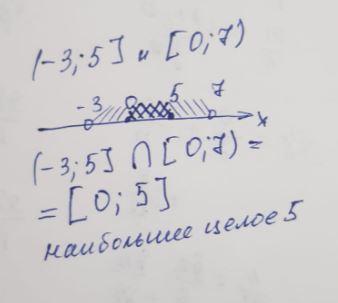 (-3; 5] и [0; 7)
-3 0 5 7 x
(-3; 5] ∩ [0; 7) =
= [0; 5]
наибольшее целое 5